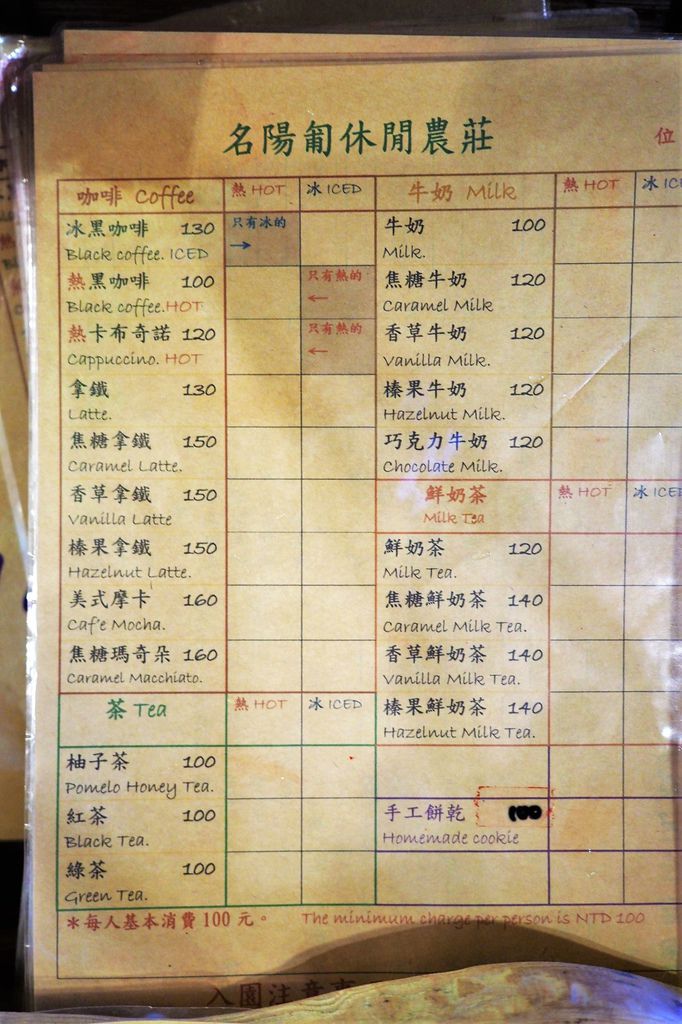 名陽匍休閒農莊
位
咖啡 Coffee 熱 HOT 冰 ICED
冰黑咖啡 130 只有冰的 →
Black coffee. ICED
熱黑咖啡 100 只有熱的 ←
Black coffee.HOT
熱卡布奇諾 120 只有熱的 ←
Cappuccino. HOT
拿鐵 130
Latte.
焦糖拿鐵 150
Caramel Latte.
香草拿鐵 150
Vanilla Latte
榛果拿鐵 150
Hazelnut Latte.
美式摩卡 160
Caf'e Mocha.
焦糖瑪奇朵 160
Caramel Macchiato.
茶 Tea 熱 HOT 冰 ICED
柚子茶 100
Pomelo Honey Tea.
紅茶 100
Black Tea.
綠茶 100
Green Tea.
牛奶 Milk 熱 HOT 冰 IC
牛奶 100
Milk.
焦糖牛奶 120
Caramel Milk
香草牛奶 120
Vanilla Milk.
榛果牛奶 120
Hazelnut Milk.
巧克力牛奶 120
Chocolate Milk.
鮮奶茶 熱 HOT 冰 ICE
Milk Tea
鮮奶茶 120
Milk Tea.
焦糖鮮奶茶 140
Caramel Milk Tea.
香草鮮奶茶 140
Vanilla Milk Tea.
榛果鮮奶茶 140
Hazelnut Milk Tea.
手工餅乾 100
Homemade cookie
*每人基本消費 100 元。 The minimum charge per person is NTD 100
入園注意